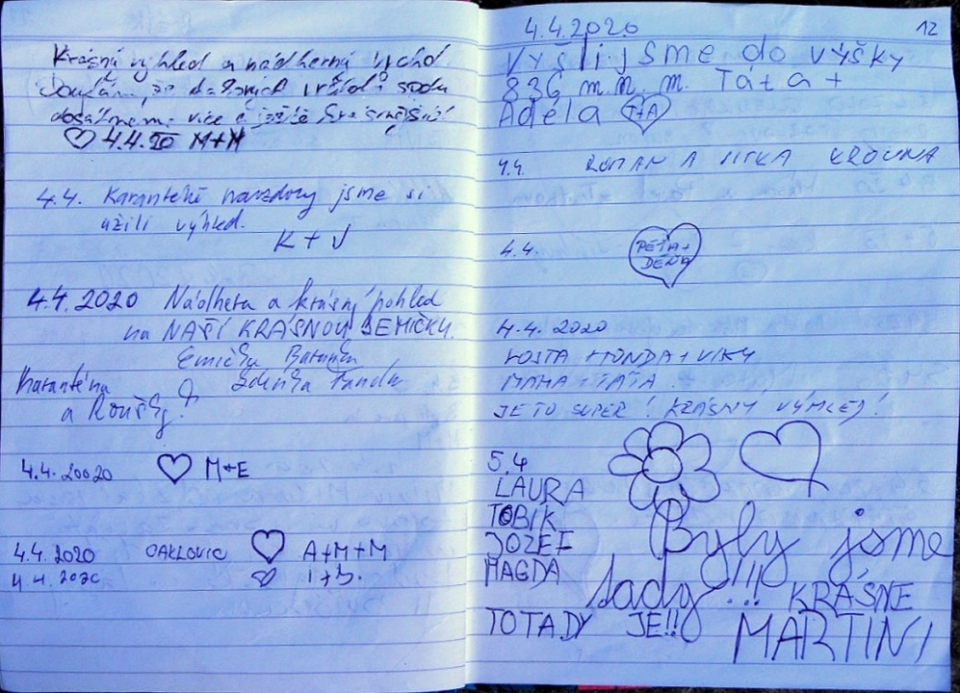 Krásný výhled a nádherný východ
dosáhneme více a ještě
♡ 4.4.20 M+M
4.4. Karanténě navzdory jsme si
užili výhled.
K + V
4.4.2020 Nádhera a krásný pohled
na NAŠÍ KRÁSNOU ZEMIČKU.
Emička
Karanténa
a Roušky!
4.4.20020 ♡ M+E
4.4.2020 OAKLOVIC ♡ A+M+M
4.4.2020 ♡
12
4.4.2020
Vyšli jsme do výšky
836 m.n.m. Táta +
Adéla T+A
4.4. ROMAN A JITKA KROUNA
4.4. PEŤA+
DEŇA
4.4.2020
HONDA + VIKY
MAMA + TÁTA
JE TO SUPER! KRÁSNÝ VÝHLED!
5.4
LAURA
TOBIK
JOZEF
MAGDA
TOTADY JE!!
Byly jsme
tady!!! KRÁSNE
MARTINI